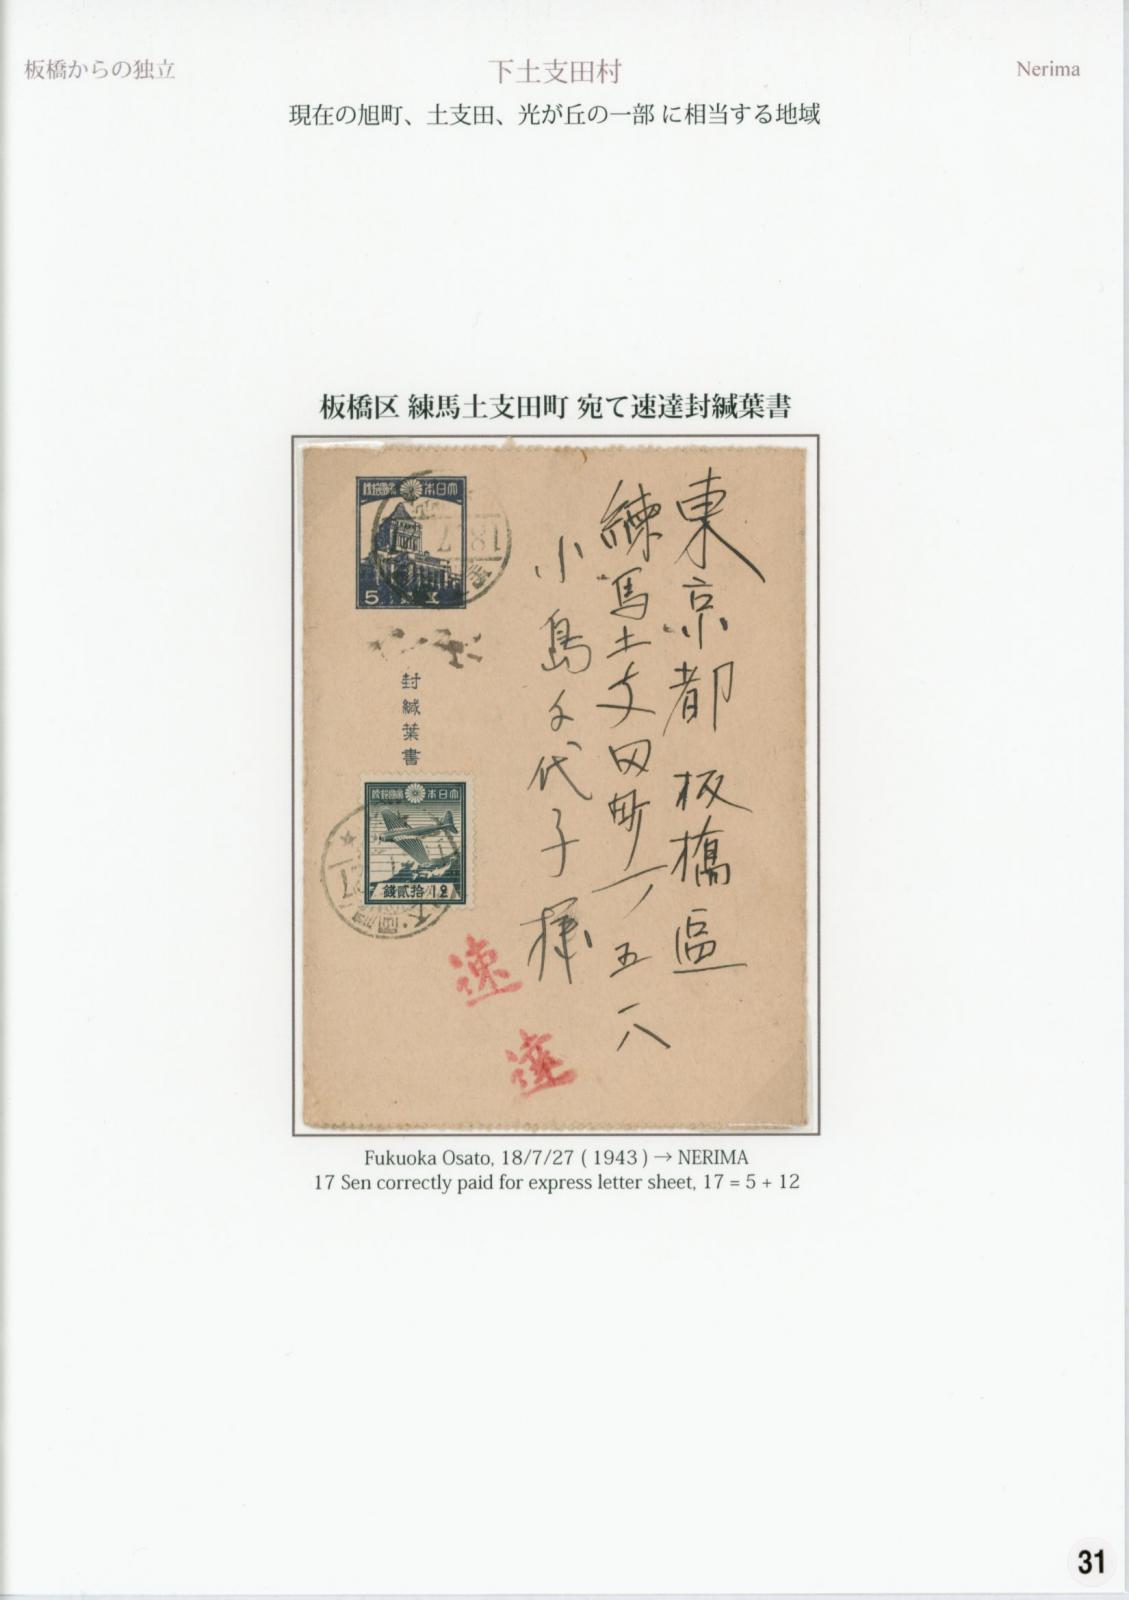 板橋からの独立
下土支田村
Nerima
現在の旭町、土支田、光が丘の一部 に相当する地域
板橋区 練馬土支田町 宛て速達封緘葉書
東京都 板橋區
練馬土支田町一ノ五一八
小島千代子様
大日本帝國郵便
5
封緘葉書
大日本帝國郵便
12 拾貳錢
速
達
Fukuoka Osato, 18/7/27 ( 1943 ) → NERIMA
17 Sen correctly paid for express letter sheet, 17 = 5 + 12
31